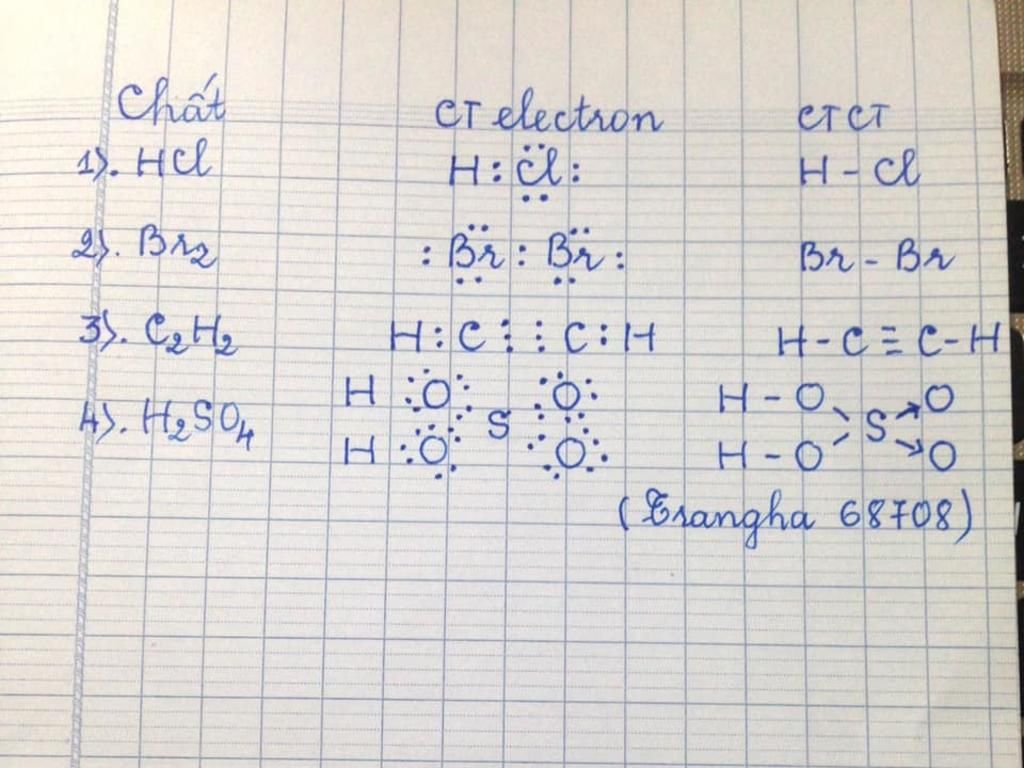 Chất CT electron CTCT
1). HCl H : Cl : H - Cl
2). Br2 : Br : Br : Br - Br
3). C2H2 H : C ⋮ ⋮ C : H H - C ≡ C - H
H : O : : O : H - O O
4). H2SO4 S S
H : O : : O : H - O O
(Trangha 68708)